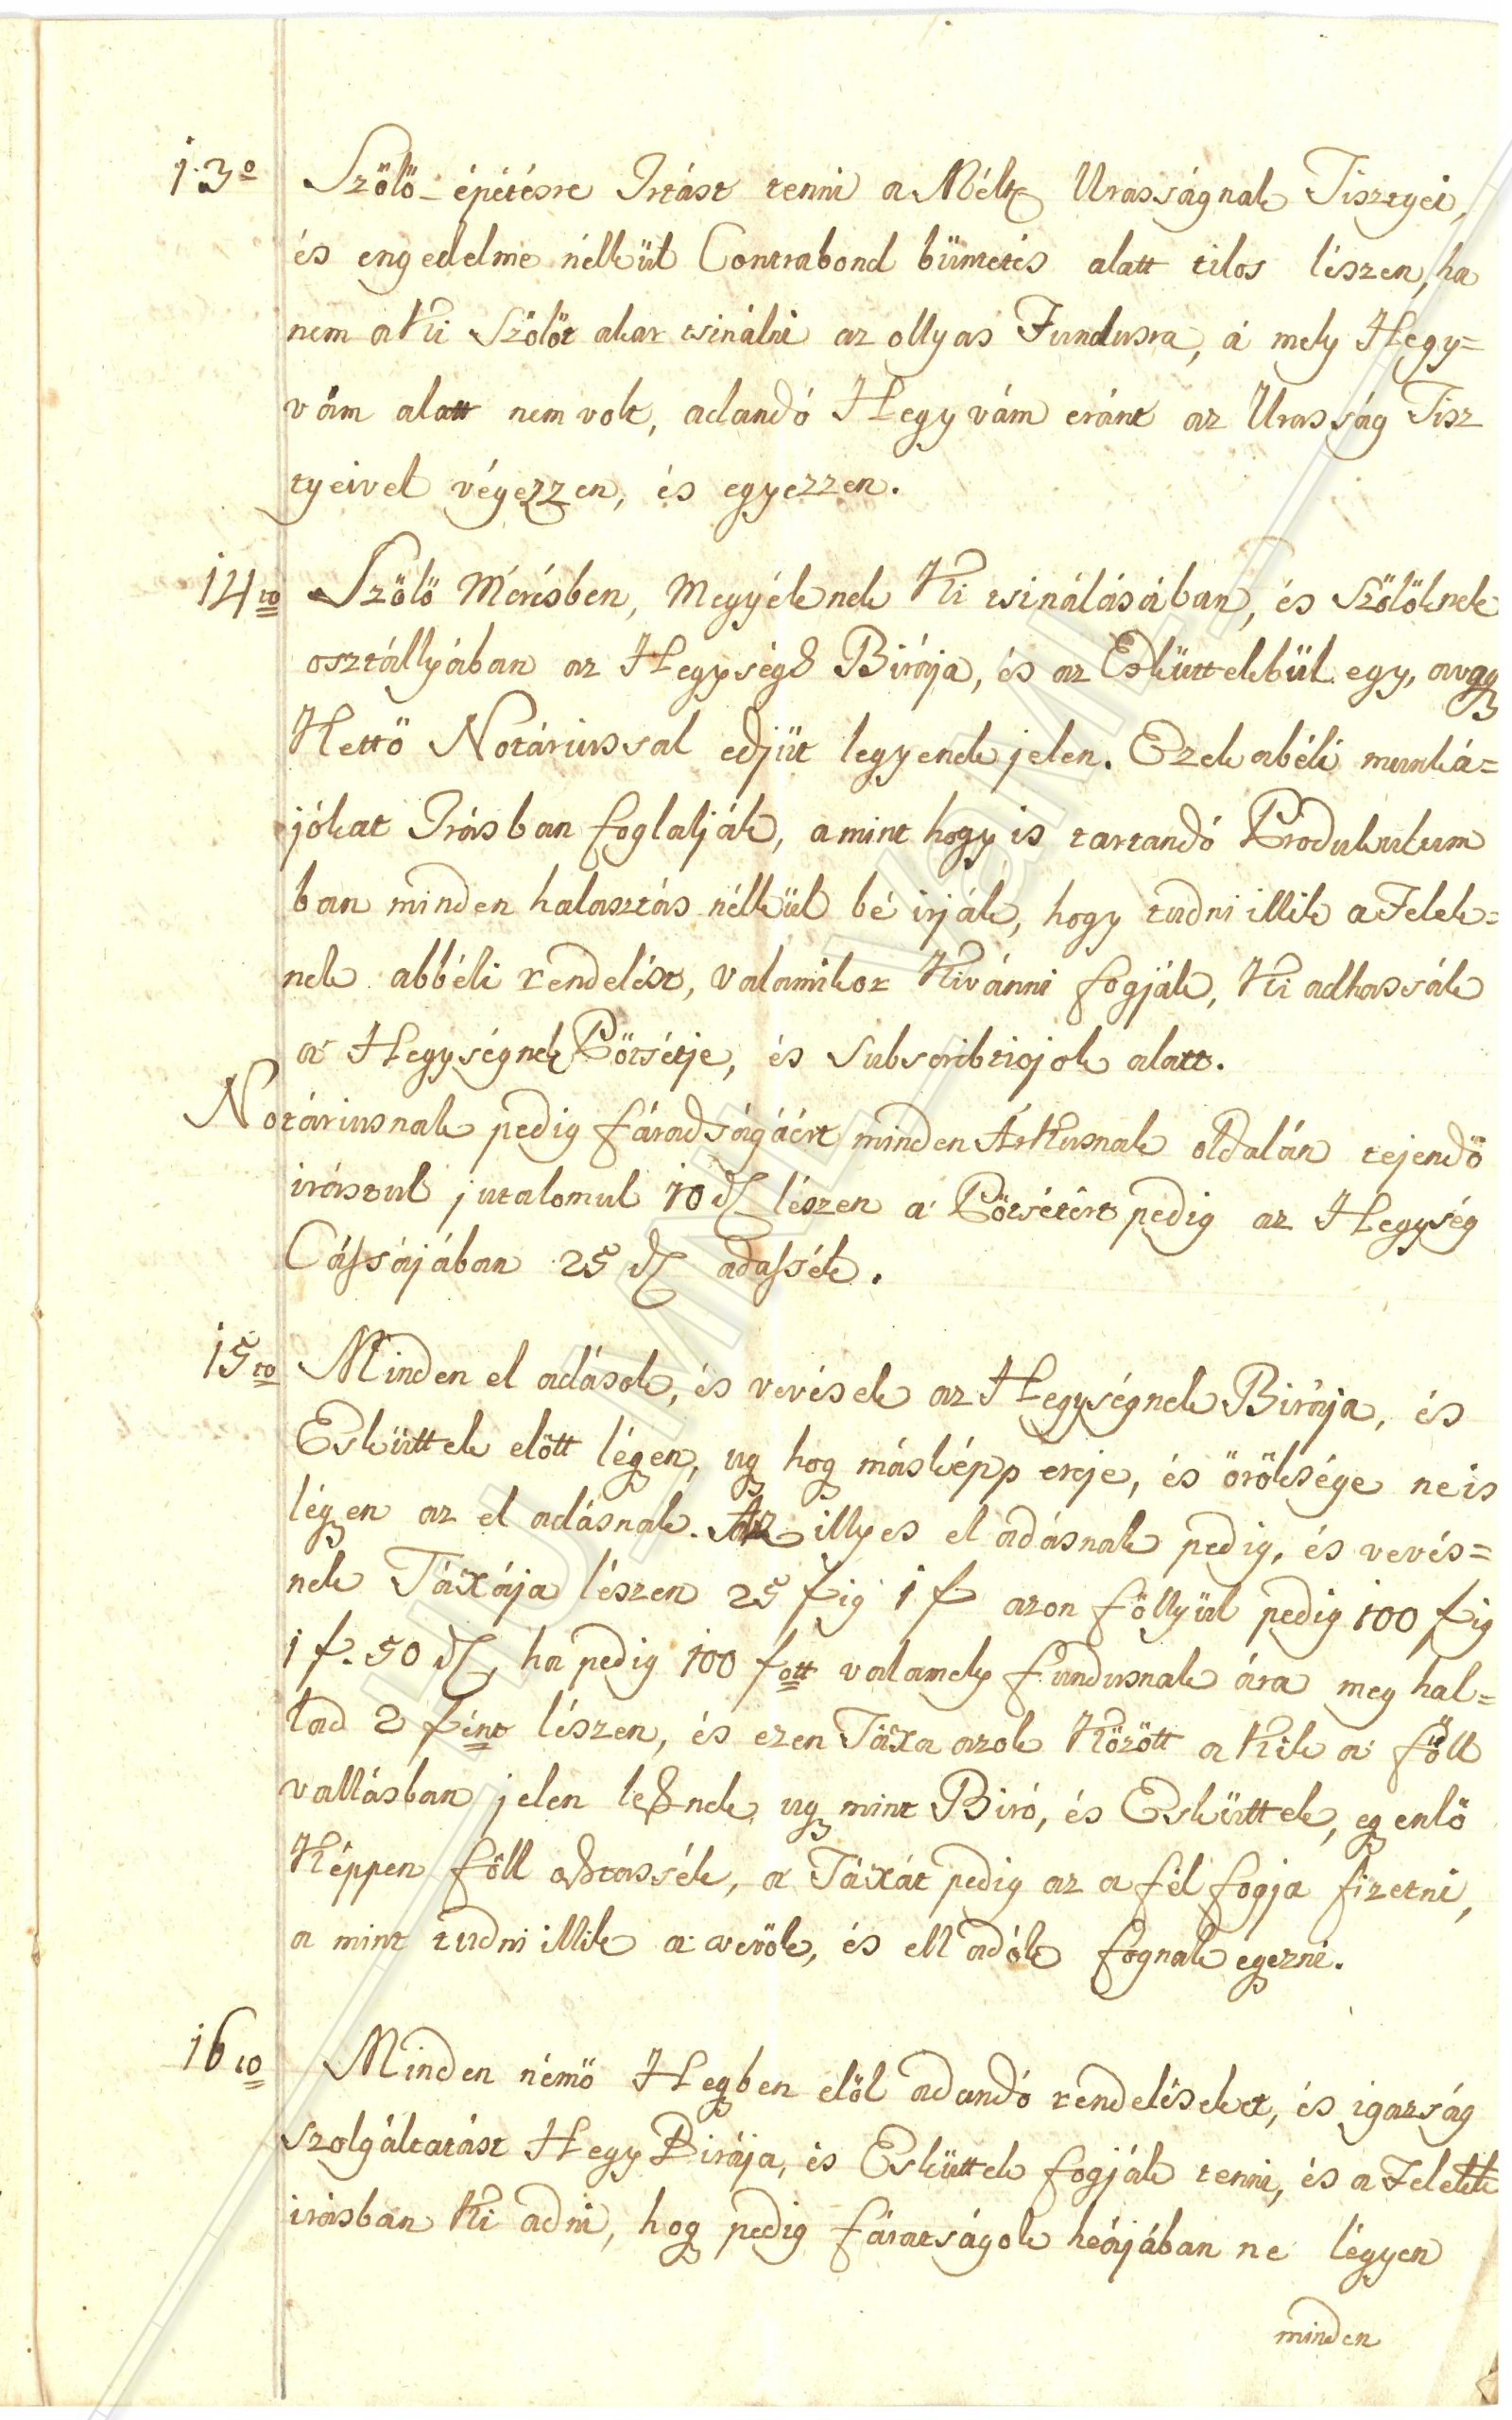 13º Szölö-épétésre Irtást tenni a Mélt Uraságnak Tisztyei,
és engedelme nélkül Contrabond büntetés alatt tilos lészen, ha
nem a Ki Szölöt akar tsinálni az ollyas Fundusra, á mely Hegy=
vám alatt nem volt, adandó Hegy vám eránt az Uraság Tisz
tyeivel végezzen, és egyezzen.
14to Szölö Mérésben, Megyéknek Ki tsinálásában, és Szölöknek
osztállyában az Hegység Birája, és az Esküttekbül egy, avagy
Kettö Notáriussal edjüt legyenek jelen. Ezek abéli munká=
jókat Irásban foglalják, amint hogy is tartandó Produkulum
ban minden halasztás nélkül bé irják, hogy tudni illik a Felek=
nek abbéli rendelést, valamikor Kivánni fogják, Ki adhassák
a Hegységnek Pötsétje, és Subscribtiojok alatt.
Notáriusnak pedig fáradságáért minden Árkusnak oldalán tejendö
irástul jutalomul 10 d lészen a Pötsétért pedig az Hegység
Cássájában 25 d adassék.
15to Minden el adások, és vevések az Hegységnek Birája, és
Esküttek elött légen, ug hog másképp ereje, és öröksége ne is
légen az el adásnak. Az illyes el adásnak pedig, és vevés=
nek Táxája lészen 25 fig 1 f azon föllyül pedig 100 fig
1 f. 50 d, ha pedig 100 fott valamely fundusnak ára meg hal=
lad 2 fént lészen, és ezen Táxa azok Között a Kik a föll
vallásban jelen lesznek, ug mint Biró, és Esküttek, eg enlö
Képpen föll osztassék, a Táxát pedig az a fél fogja fizetni,
a mint tudni illik a vevök, és ell adók fognak egezni.
16to Minden némö Hegben elöl adandó rendeléseket, és igazság
szolgáltatást Hegy Birája, és Esküttek fogják tenni, és a Felekk
irásban Ki adni, hog pedig fáratságok heájában ne légyen
minden